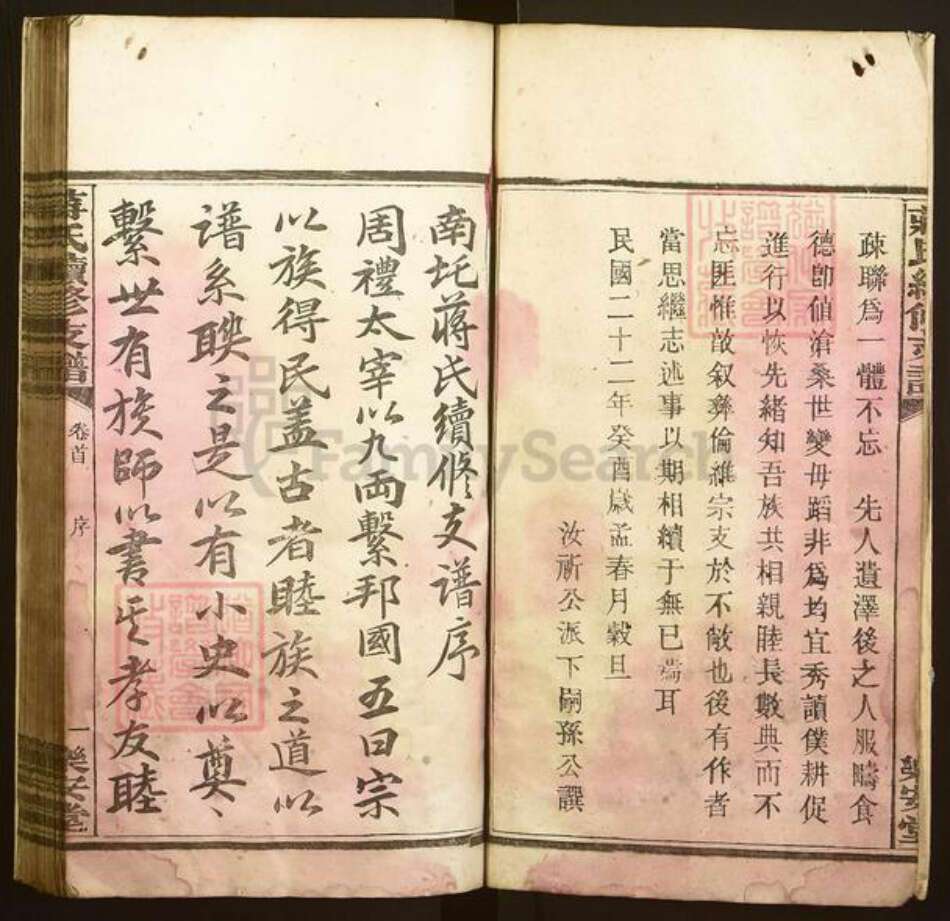 疎聯爲一體不忘　先人遺澤後之人服疇食
德卽値滄桑世變毋蹈非爲均宜秀讀僕耕促
進行以恢先緒知吾族共相親睦長數典而不
忘匪惟敢叙彝倫維宗支於不敝也後有作者
當思繼志述事以期相續于無已焉耳
民國二十二年癸酉歲孟春月穀旦
汝所公派下嗣孫公譔
樂安堂
南圫蔣氏續修支譜序
周禮太宰以九兩繫邦國五曰宗
以族得民盖古者睦族之道以
譜系聯之是以有小史以奠〻
繫世有族師以書其孝友睦
蔣氏續修支譜
卷首
序
一
樂安堂
FamilySearch